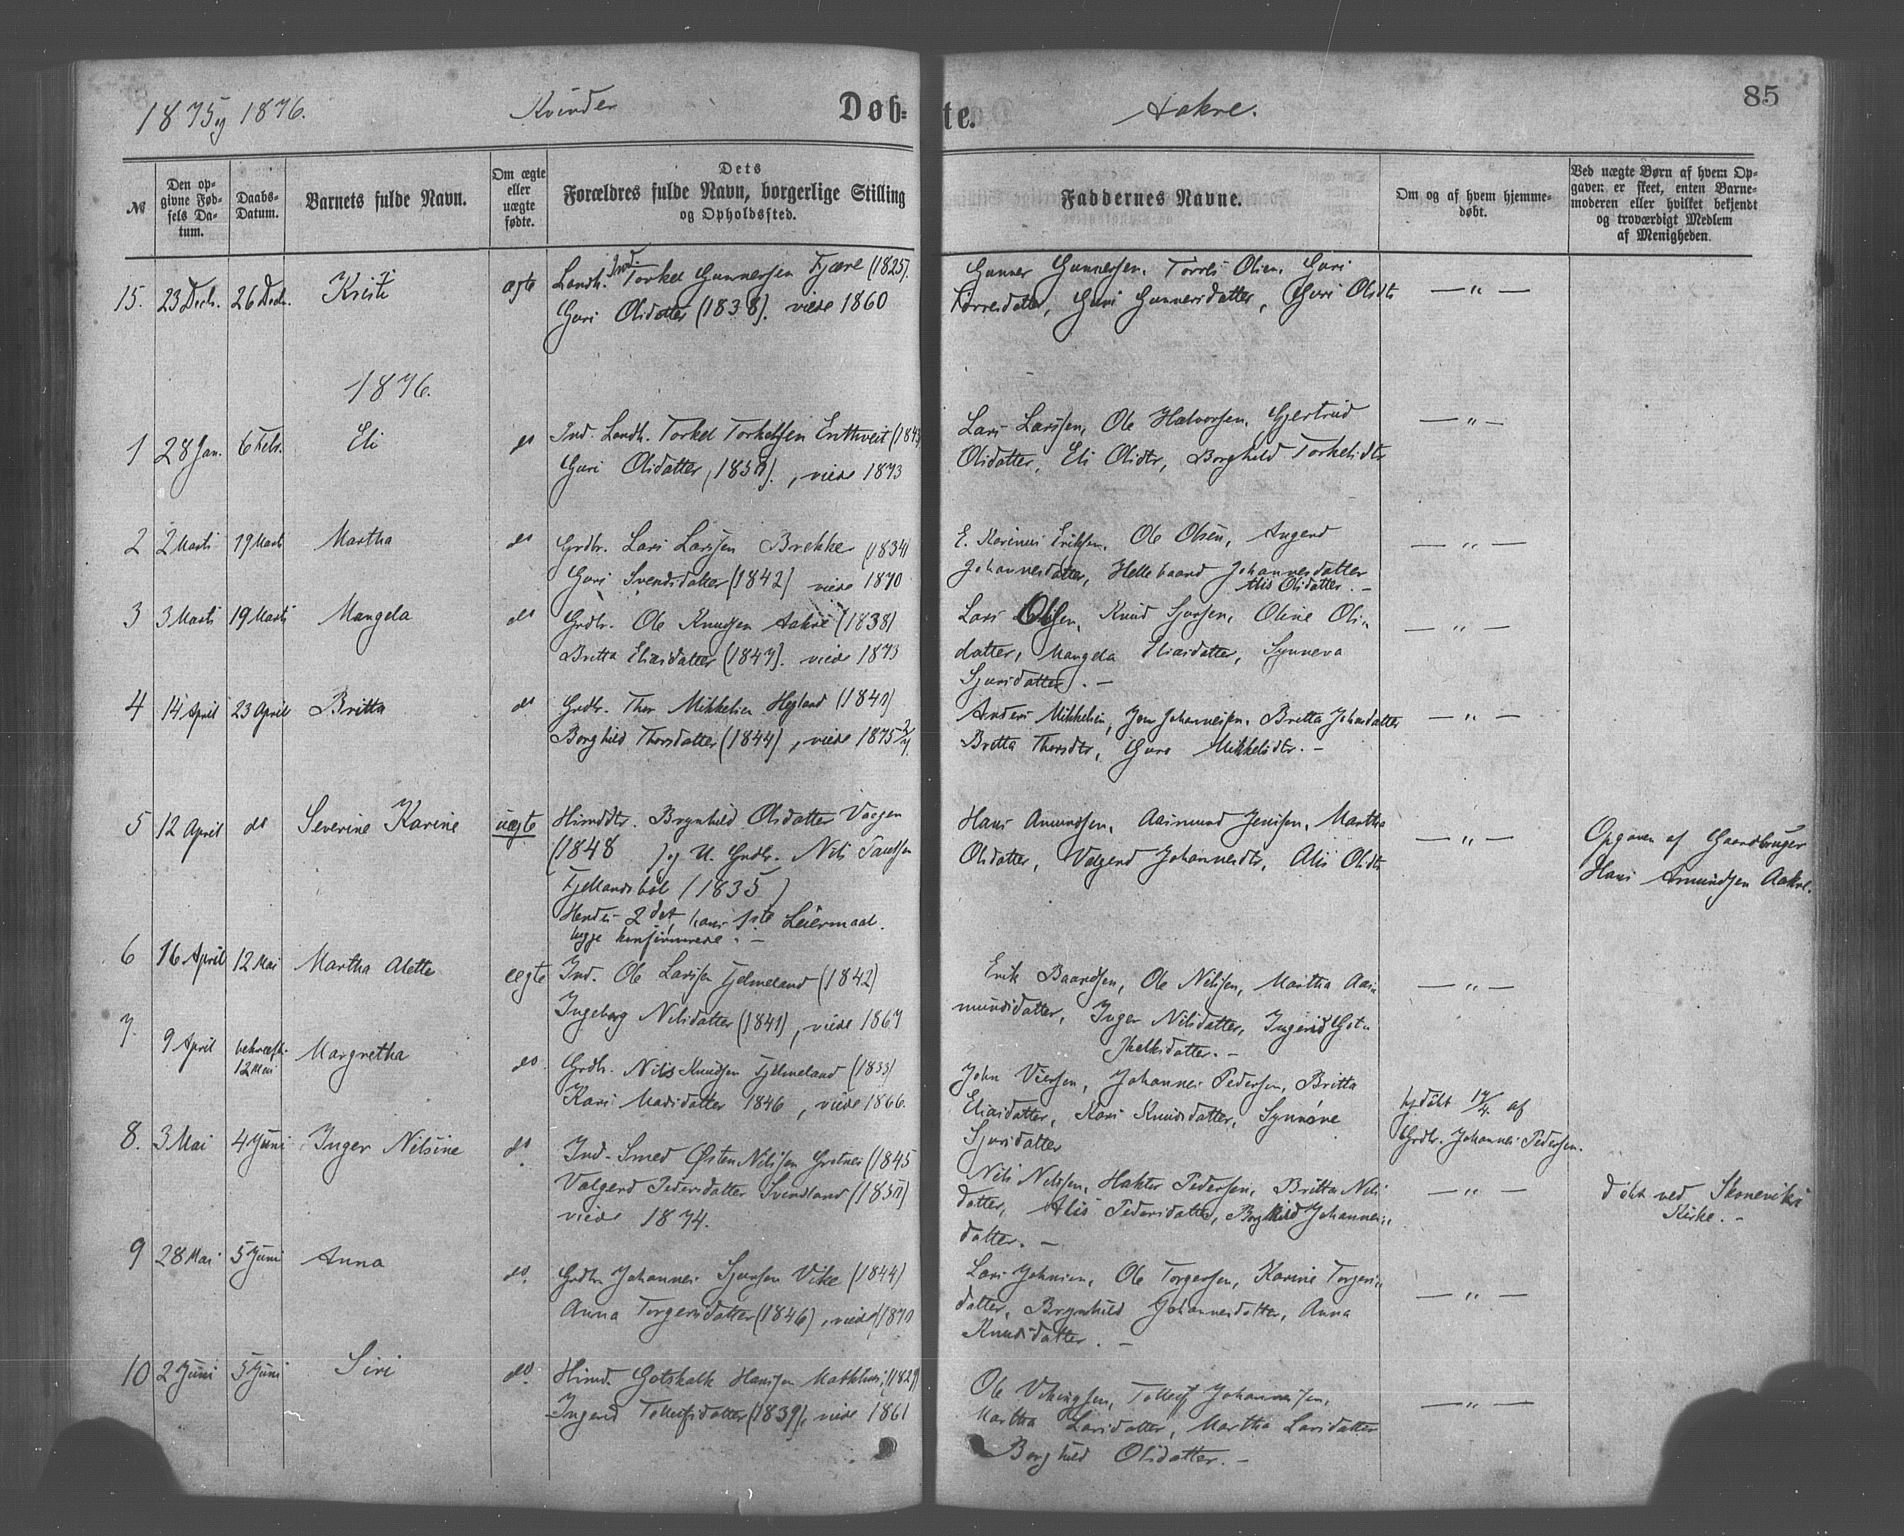 1875 og 1876. Kvinder Døb- te. Aakre. 85
№
Den op-
givne Fød-
sels Da-
tum.
Daabs-
Datum.
Barnets fulde Navn.
Om ægte
eller
uægte
fødte.
Dets
Forældres fulde Navn, borgerlige Stilling
og Opholdssted.
Faddernes Navne.
Om og af hvem hjemme-
døbt.
Ved uægte Børn af hvem Op-
gaven er skeet, enten Barne-
moderen eller hvilket bekjendt
og troværdigt Medlem
af Menigheden.
15. 23 Decb. 26 Decb. Kristi ægte
Landh. Ind. Torkel Gunnersen Fjære (1825).
Guri Olsdatter (1838). viede 1860
Gunner Gunnersen, Torres Olsen, Guri
Torresdatter, Guri Gunnersdatter, Guri Olsdtr
— „ —
1876.
1 28 Jan. 6 Febr. Eli do
Ind. Landh. Torkel Torkelsen Enthveit (1843
Guri Olsdatter, 1850)., viede 1873
Lars Larssen, Ole Halvorsen, Gjertrud
Olsdatter, Eli Olsdtr, Borghild Torkelsdtr
— „ —
2 2 Marts 19 Marts Martha do
Grdbr. Lars Larssen Brekke (1834)
Guri Svendsdatter (1842) viede 1870
E. Karinus Eriksen, Ole Olsen, Angerd
Johannesdatter, Helle Baard Johannesdatter
Alis Olsdatter. —
— „ —
3 3 Marts 19 Marts Mangela do
Grdbr. Ole Knudsen Aakre (1838)
Britta Eliasdatter (1847). viede 1873
Lars Olsen, Knud Sjursen, Oline Ols-
datter, Mangela Eliasdatter, Synneva
Sjursdatter. —
— „ —
4 14 April 23 April Britta do
Grdbr. Thor Mikkelsen Hegland (1840)
Borghild Thorsdatter (1844), viede 1875 2/7.
Anders Mikkelsen, Jon Johannessen, Britta Johansdatter
Britta Thorsdtr, Guro Mikkelsdtr. —
— „ —
5 12 April do Severine Karine uægte
Huusdtr. Brynhild Olsdatter Vaagen
(1848 ) og U. Grdbr. Nils
Fjellandsbøl (1835)
Hendes 2det, hans 1ste Leiermaal.
begge konfirmerede. —
Hans Amundsen, Aasmund Jenssen, Martha
Olsdatter, Valgerd Johannesdtr, Alis Olsdtr
— „ —
Opgaven af Gaardbruger
Hans Amundsen Aakre.
6 16 April 12 Mai Martha Alette ægte
Ind. Ole Larssen Fjelmeland (1842)
Ingeborg Nilsdatter (1841), viede 1867
Erik Baardsen, Ole Nilsen, Martha Aas-
mundsdatter, Inger Nilsdatter, Ingerid Got-
skalksdatter. —
— „ —
7. 9 April bekræft. 12 Mai Margretha do.
Grdbr. Nils Knudsen Fjelmeland (1835)
Kari Madsdatter 1846, viede 1866.
John Viersen, Johannes Pedersen, Britta
Eliasdatter, Kari Knudsdatter, Synnøve
Sjursdatter
hjdøbt 14/4. af
Grdbr. Johannes Pedersen.
8. 3 Mai 4 Juni Inger Nilsine do.
Ind. Smed Østen Nilsen Grotnes (1845
Valgerd Pedersdatter Svendland (1850)
viede 1874.
Nils Nilssen, Halster Pedersen, Britta Nils
datter, Alis Pedersdatter, Borghild Johannes-
datter. —
— „ —
døbt ved Skonevigs
Kirke. —
9 28 Mai 5 Juni Anna do.
Grdbr Johannes Sjursen Vike (1844)
Anna Torgersdatter (1846), viede 1870
Lars Johnsen, Ole Torgersen, Karine Torgers-
datter, Brynhild Johannesdatter, Anna
Knudsdatter. —
— „ —
10 2 Juni 5 Juni Siri do.
Huusd. Gotskalk Hanssen Matthius, (1829)
Ingerid Tollefsdatter (1839), viede 1861
Ole Vikingsen, Tollef Johannessen,
Martha Larsdatter, Martha Larsdatter
Borghild Olsdatter. —
— „ —